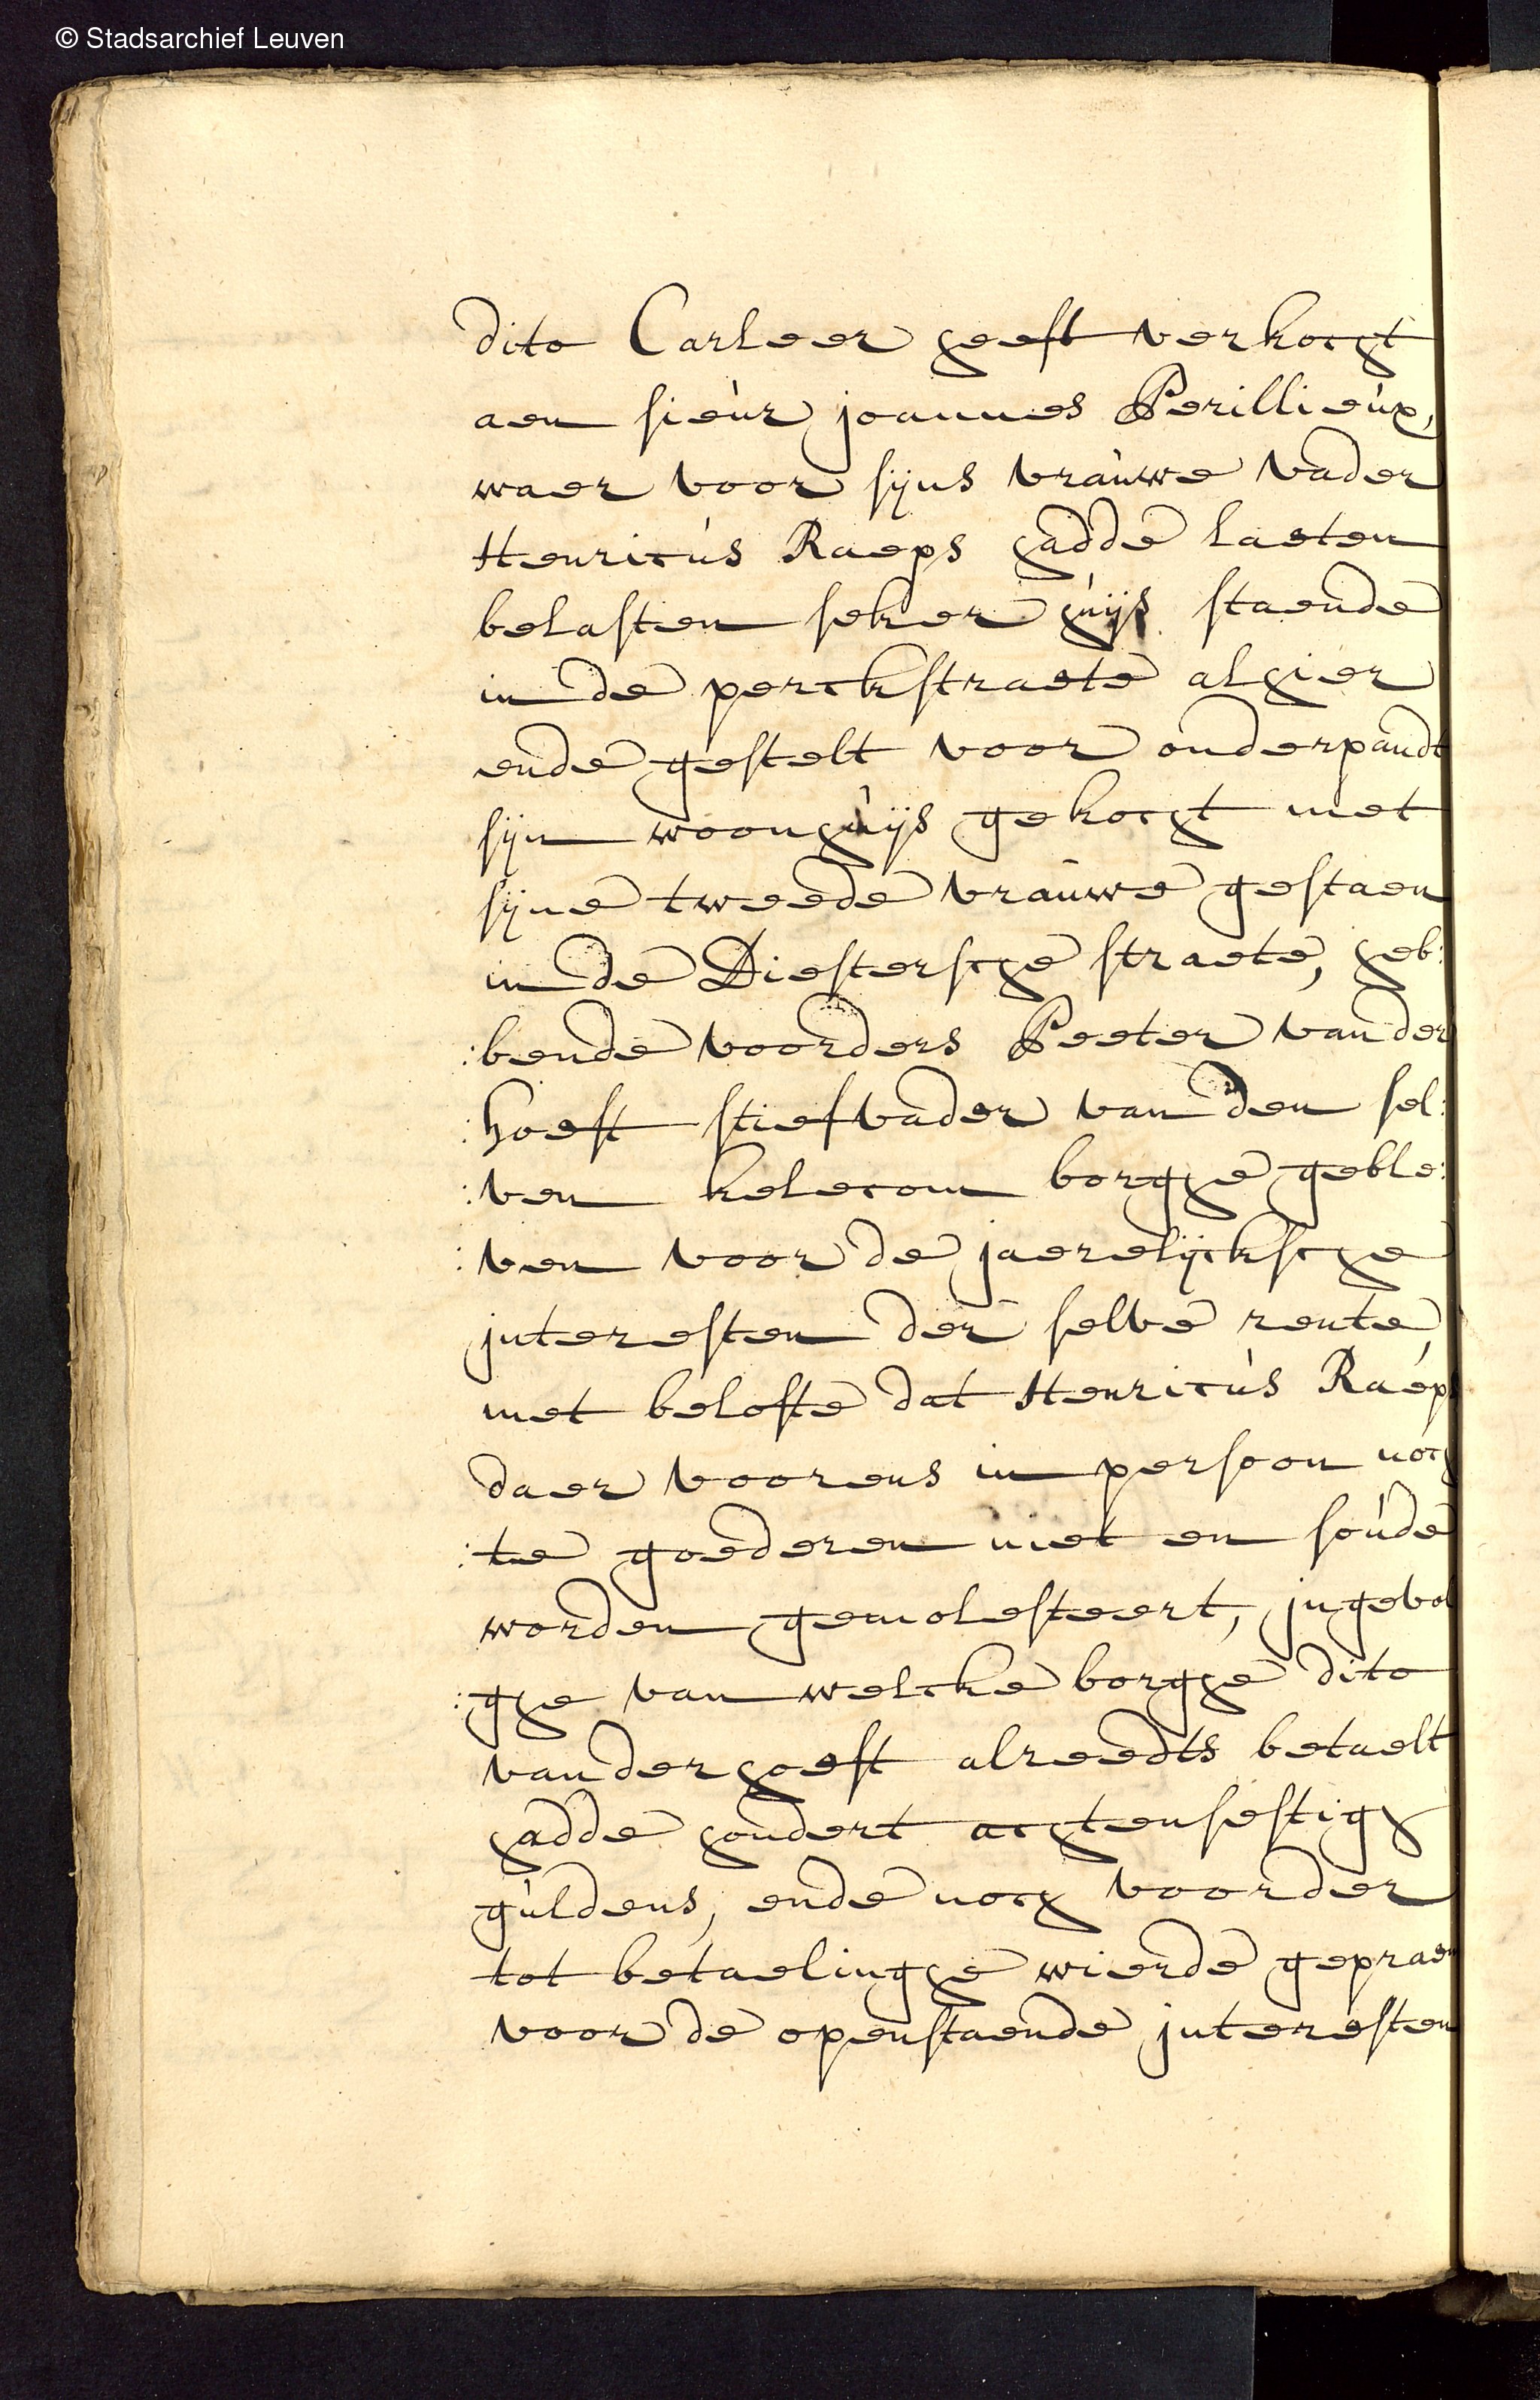 © Stadsarchief Leuven
dito Carleer heeft verkocht
aen sieur joannes Perillieux,
waer voor sijns vrauwe vader
Henricus Raeps hadde laeten
belasten seker huijs staende
in de perckstraete alhier
ende gestelt voor onderpandt
sijn woonhuijs gekocht met
sijne tweede vrauwe gestaen
in de Diestersche straete, heb:
:bende voorders Peeter vander
:hoeft stiefvader van den sel:
:ven kelecom borghe geble:
:ven voor de jaerelijcksche
interesten der selve rente,
met belofte dat Henricus Raeps
daer voorens in persoon noch
:te goederen niet en soude
worden gemolesteert, in gevol
:ghe van welcke borghe dito
vanderhoeft alreedts betaelt
hadde hondert achtensestigh
guldens, ende noch voorder
tot betaelinghe wierde gepraem
voor de openstaende interesten